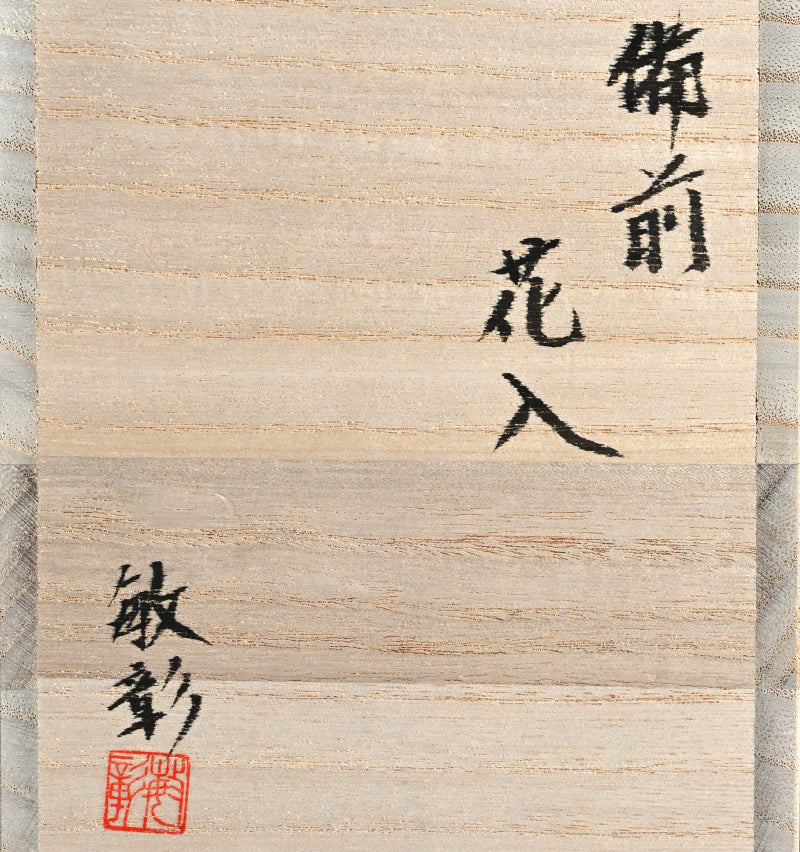 備前
花入
敏彰